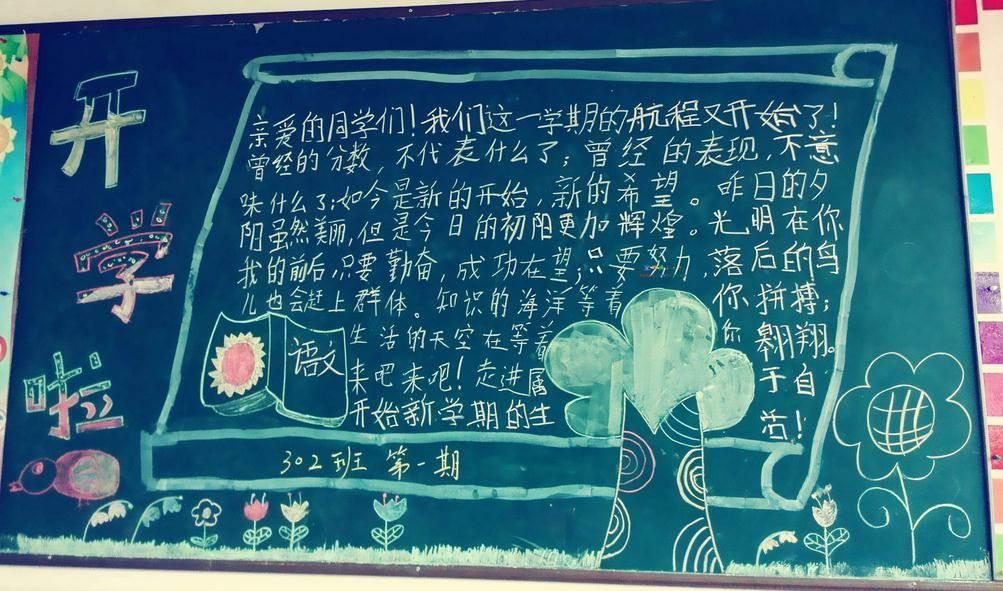 开学啦
亲爱的同学们！我们这一学期的航程又开始了！
曾经的分数，不代表什么了；曾经的表现，不意
味什么了；如今是新的开始，新的希望。昨日的夕
阳虽然美丽，但是今日的初阳更加辉煌。光明在你
我的前后，只要勤奋，成功在望；只要努力，落后的鸟
儿也会赶上群体。知识的海洋等着你拼搏；
生活的天空在等着你翱翔。
来吧来吧！走进属于自
开始新学期的生活！
语文
302班 第一期